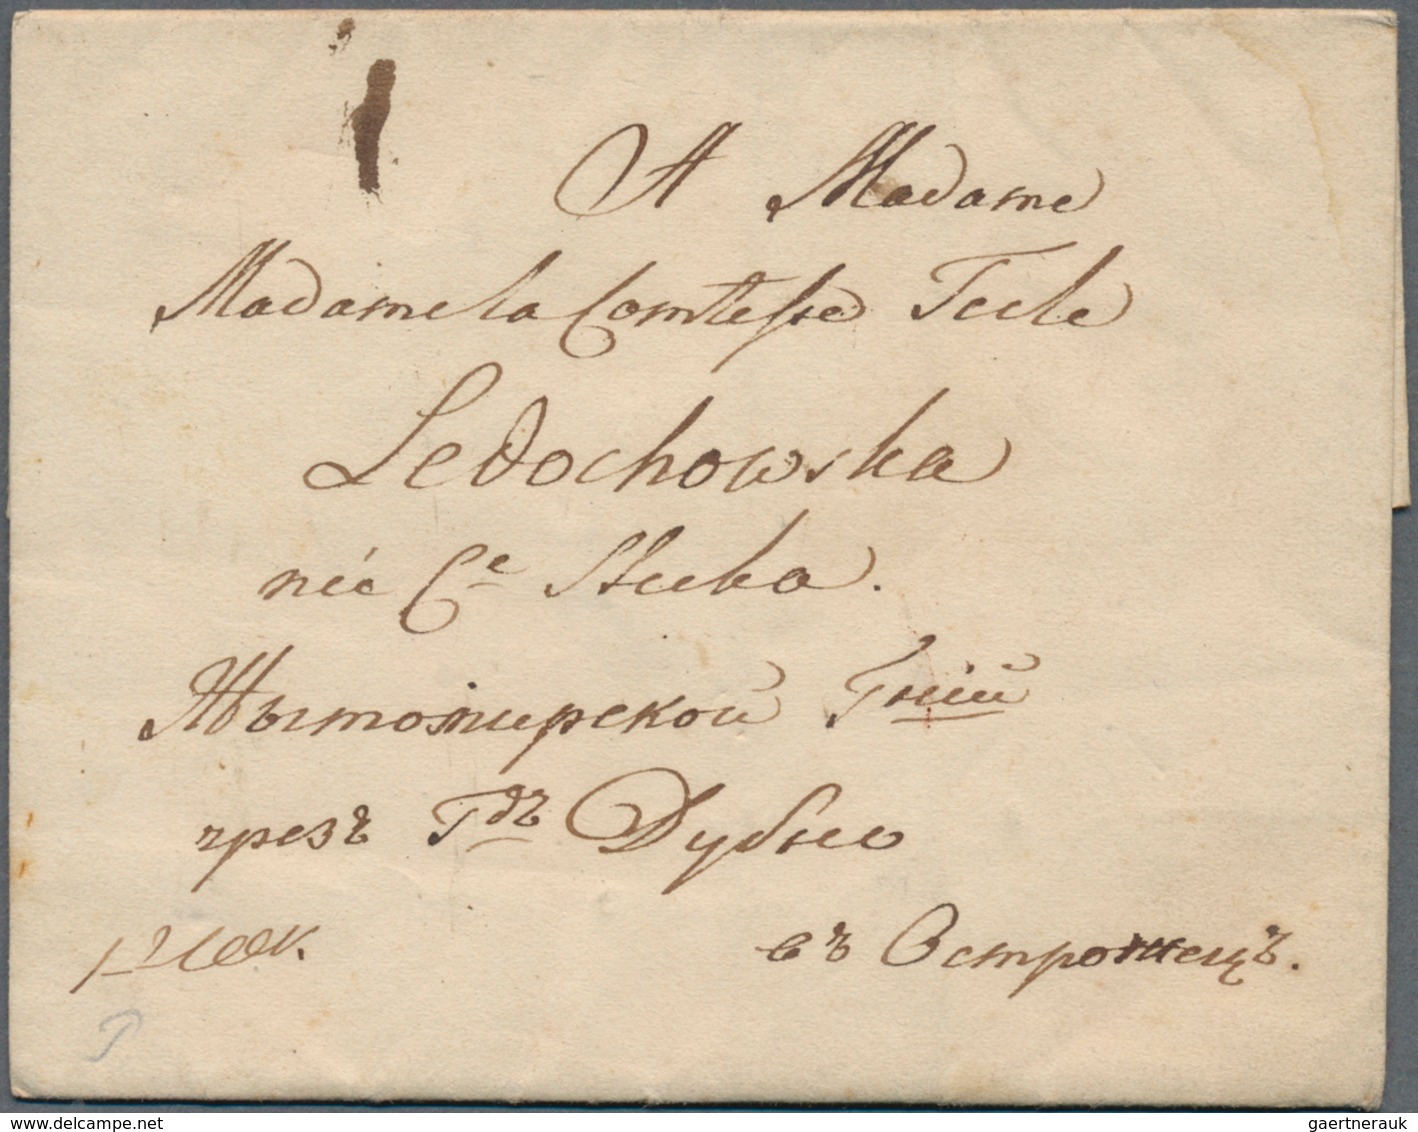 A Madame
Madame la Comtesse Tecle
Ledochowska
née C.e
Жытомирской Гніи
чрезъ Гдъ Дубно
въ Острожецъ.
delcampe.net
gaertnerauk